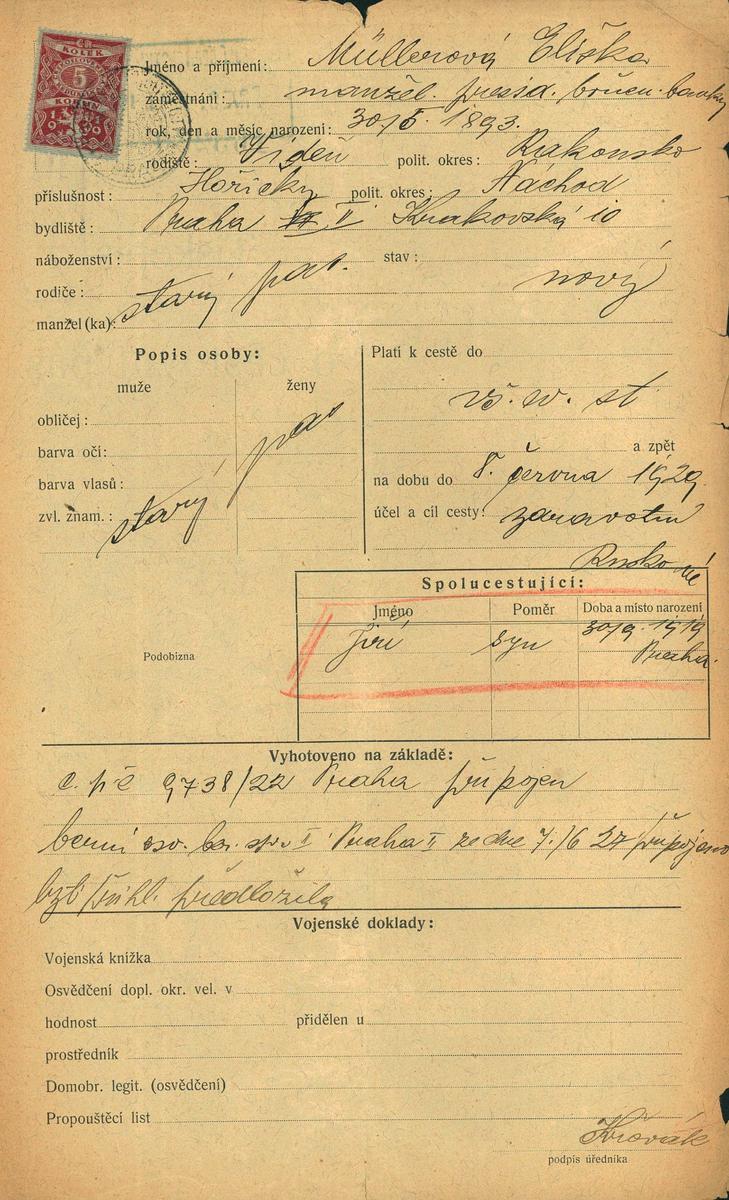 KOLEK
5
Jméno a příjmení: Müllerová Eliška
zaměstnání: manžel. presid. banky
rok, den a měsíc narození: 30/5. 1893.
rodiště: Vídeň polit. okres: Rakousko
příslušnost: Hořičky polit. okres: Náchod
bydliště: Praha II Krakovská 10
náboženství: stav:
rodiče: starý pas. nový
manžel (ka):
Popis osoby:
muže ženy
obličej:
barva očí:
barva vlasů:
zvl. znam.: starý pas
Platí k cestě do
vš. w. st
a zpět
na dobu do 8. června 1929
účel a cíl cesty: zdravotní
Spolucestující:
Jméno Poměr Doba a místo narození
Jiří syn 30/9. 1919
Praha
Podobizna
Vyhotoveno na základě:
c. p. č 9738/22 Praha připojen
berní Praha II ze dne 7./6 27 připojeno
předložila
Vojenské doklady:
Vojenská knížka
Osvědčení dopl. okr. vel. v
hodnost přidělen u
prostředník
Domobr. legit. (osvědčení)
Propouštěcí list
podpis úředníka